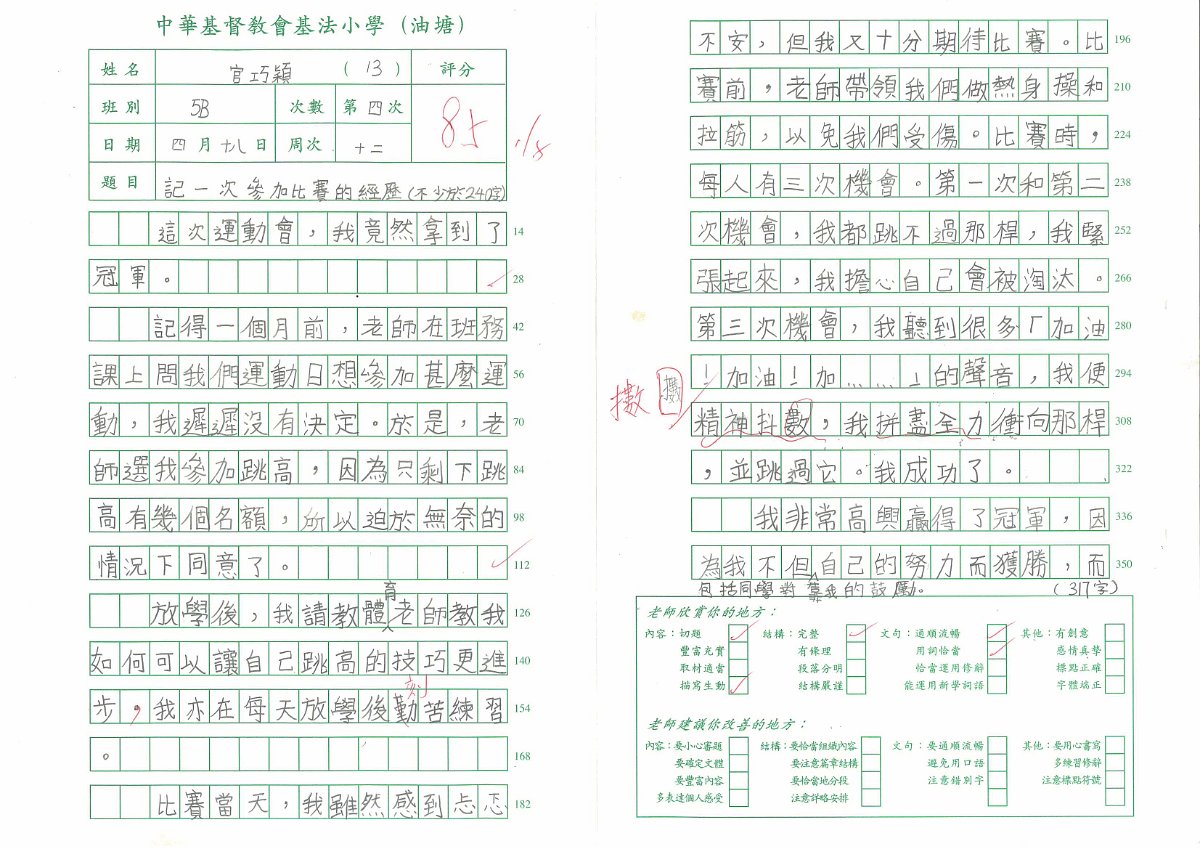 中華基督教會基法小學（油塘）
姓名 官巧穎 （13） 評分
班別 5B 次數 第四次
85
日期 四月十八日 周次 十二
題目 記一次參加比賽的經歷(不少於240字)
這次運動會，我竟然拿到了 14
冠軍。 28
記得一個月前，老師在班務 42
課上問我們運動日想參加甚麼運 56
動，我遲遲沒有決定。於是，老 70
師選我參加跳高，因為只剩下跳 84
高有幾個名額，所以迫於無奈的 98
情況下同意了。 112
放學後，我請教體育老師教我 126
如何可以讓自己跳高的技巧更進 140
刻
步，我亦在每天放學後勤苦練習 154
。 168
比賽當天，我雖然感到忐忑 182
不安，但我又十分期待比賽。比 196
賽前，老師帶領我們做熱身操和 210
拉筋，以免我們受傷。比賽時， 224
每人有三次機會。第一次和第二 238
次機會，我都跳不過那桿，我緊 252
張起來，我擔心自己會被淘汰。 266
第三次機會，我聽到很多「加油 280
！加油！加……」的聲音，我便 294
擻
精神抖數，我拼盡全力衝向那桿 308
，並跳過它。我成功了。 322
我非常高興贏得了冠軍，因 336
為我不但自己的努力而獲勝，而 350
包括同學對我的鼓勵。 (317字)
老師欣賞你的地方：
內容：切題 結構：完整 文句：通順流暢 其他：有創意
豐富充實 有條理 用詞恰當 感情真摯
取材適當 段落分明 恰當運用修辭 標點正確
描寫生動 結構嚴謹 能運用新學詞語 字體端正
老師建議你改善的地方：
內容：要小心審題 結構：要恰當組織內容 文句：要通順流暢 其他：要用心書寫
要確定文體 要注意篇章結構 避免用口語 多練習修辭
要豐富內容 要恰當地分段 注意錯別字 注意標點符號
多表達個人感受 注意詳略安排